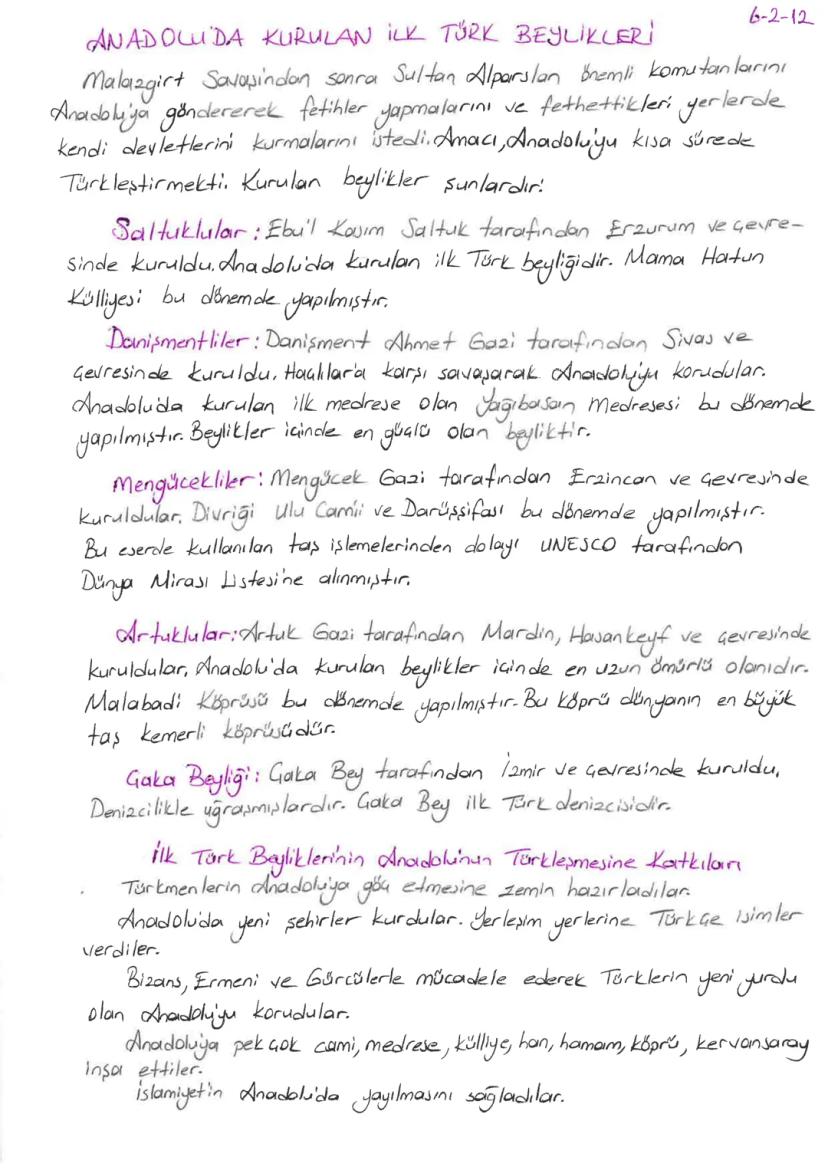 6-2-12
ANADOLU'DA KURULAN İLK TÜRK BEYLİKLERİ
Malazgirt Savaşından sonra Sultan Alparslan önemli komutanlarını
Anadolu'ya göndererek fetihler yapmalarını ve fethettikleri yerlerde
kendi devletlerini kurmalarını istedi. Amacı, Anadolu'yu kısa sürede
Türkleştirmekti. Kurulan beylikler şunlardır:
Saltuklular: Ebu'l Kasım Saltuk tarafından Erzurum ve çevre-
sinde kuruldu. Anadolu'da kurulan ilk Türk beyliğidir. Mama Hatun
Külliyesi bu dönemde yapılmıştır.
Danişmentliler: Danişment Ahmet Gazi tarafından Sivas ve
çevresinde kuruldu. Haçlılar'a karşı savaşarak Anadolu'yu korudular.
Anadolu'da kurulan ilk medrese olan Yağıbasan Medresesi bu dönemde
yapılmıştır. Beylikler içinde en güçlü olan beyliktir.
Mengücekliler: Mengücek Gazi tarafından Erzincan ve çevresinde
kuruldular. Divriği Ulu Camii ve Darüşşifası bu dönemde yapılmıştır.
Bu eserde kullanılan taş işlemelerinden dolayı UNESCO tarafından
Dünya Mirası Listesi'ne alınmıştır.
Artuklular: Artuk Gazi tarafından Mardin, Hasankeyf ve çevresinde
kuruldular. Anadolu'da kurulan beylikler içinde en uzun ömürlü olanıdır.
Malabadi Köprüsü bu dönemde yapılmıştır. Bu köprü dünyanın en büyük
taş kemerli köprüsüdür.
Çaka Beyliği: Çaka Bey tarafından İzmir ve çevresinde kuruldu.
Denizcilikle uğraşmışlardır. Çaka Bey ilk Türk denizcisidir.
İlk Türk Beyliklerinin Anadolu'nun Türkleşmesine Katkıları
Türkmenlerin Anadolu'ya göç etmesine zemin hazırladılar.
Anadolu'da yeni şehirler kurdular. Yerleşim yerlerine Türkçe isimler
verdiler.
Bizans, Ermeni ve Gürcülerle mücadele ederek Türklerin yeni yurdu
olan Anadolu'yu korudular.
Anadolu'ya pek çok cami, medrese, külliye, han, hamam, köprü, kervansaray
inşa ettiler.
İslamiyet'in Anadolu'da yayılmasını sağladılar.